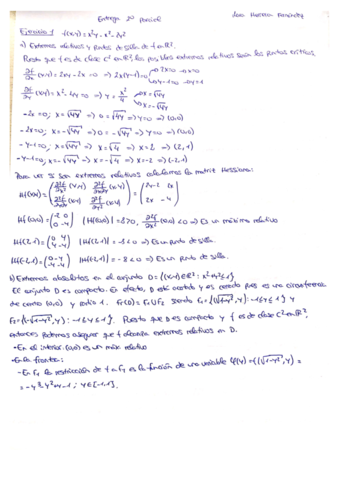 Entrega 2º Parcial
Ejercicio 1 f(x,y)=x²y-x²-2y²
a) Extremos relativos y puntos de silla de f en R².
Puesto que f es de clase C¹ en R², los posibles extremos relativos serán los puntos críticos.
∂f/∂x (x,y) = 2xy-2x=0 → 2x(y-1)=0
∂f/∂y (x,y) = x²-4y=0 → y = x²/4 → x=√4y
→ x=-√4y
-2x=0; x=√4y → 0=√4y → y=0 → (0,0)
-2x=0; x=-√4y → 0=-√4y → y=0 → (0,0)
-y-1=0; x=√4y → x=√4 → x=2 → (2,1)
-y-1=0; x=-√4y → x=-√4 → x=-2 → (-2,1)
Para ver si son extremos relativos calculamos la matriz Hessiana:
Hf(0,0)= (-2 0 / 0 -4) |Hf(0,0)|=8>0, ∂²f/∂x² (0,0)<0 ⇒ Es un máximo relativo
Hf(2,1)= (0 4 / 4 -4) |Hf(2,1)|=-8<0 ⇒ Es un punto de silla.
Hf(-2,1)= (0 -4 / -4 -4) |Hf(-2,1)|=-8<0 ⇒ Es un punto de silla.
b) Extremos absolutos en el conjunto D={(x,y)∈R²: x²+y²≤1}
El conjunto D es compacto. En efecto, D está acotado y es cerrado pues es una circunferencia
de centro (0,0) y radio 1. Fr(D)=F₁∪F₂ siendo F₁={(√1-y², y): -1≤y≤1} y
F₂={(-√1-y², y): -1≤y≤1}. Puesto que D es compacto y f es de clase C² en R²,
entonces podemos asegurar que f alcanza extremos relativos en D.
-En el interior: (0,0) es un máx relativo
-En la frontera:
-En F₁ la restricción de f a F₁ es la función de una variable φ(y)=f(√1-y², y)=
=-y³-y²+y-1; y∈[-1,1].